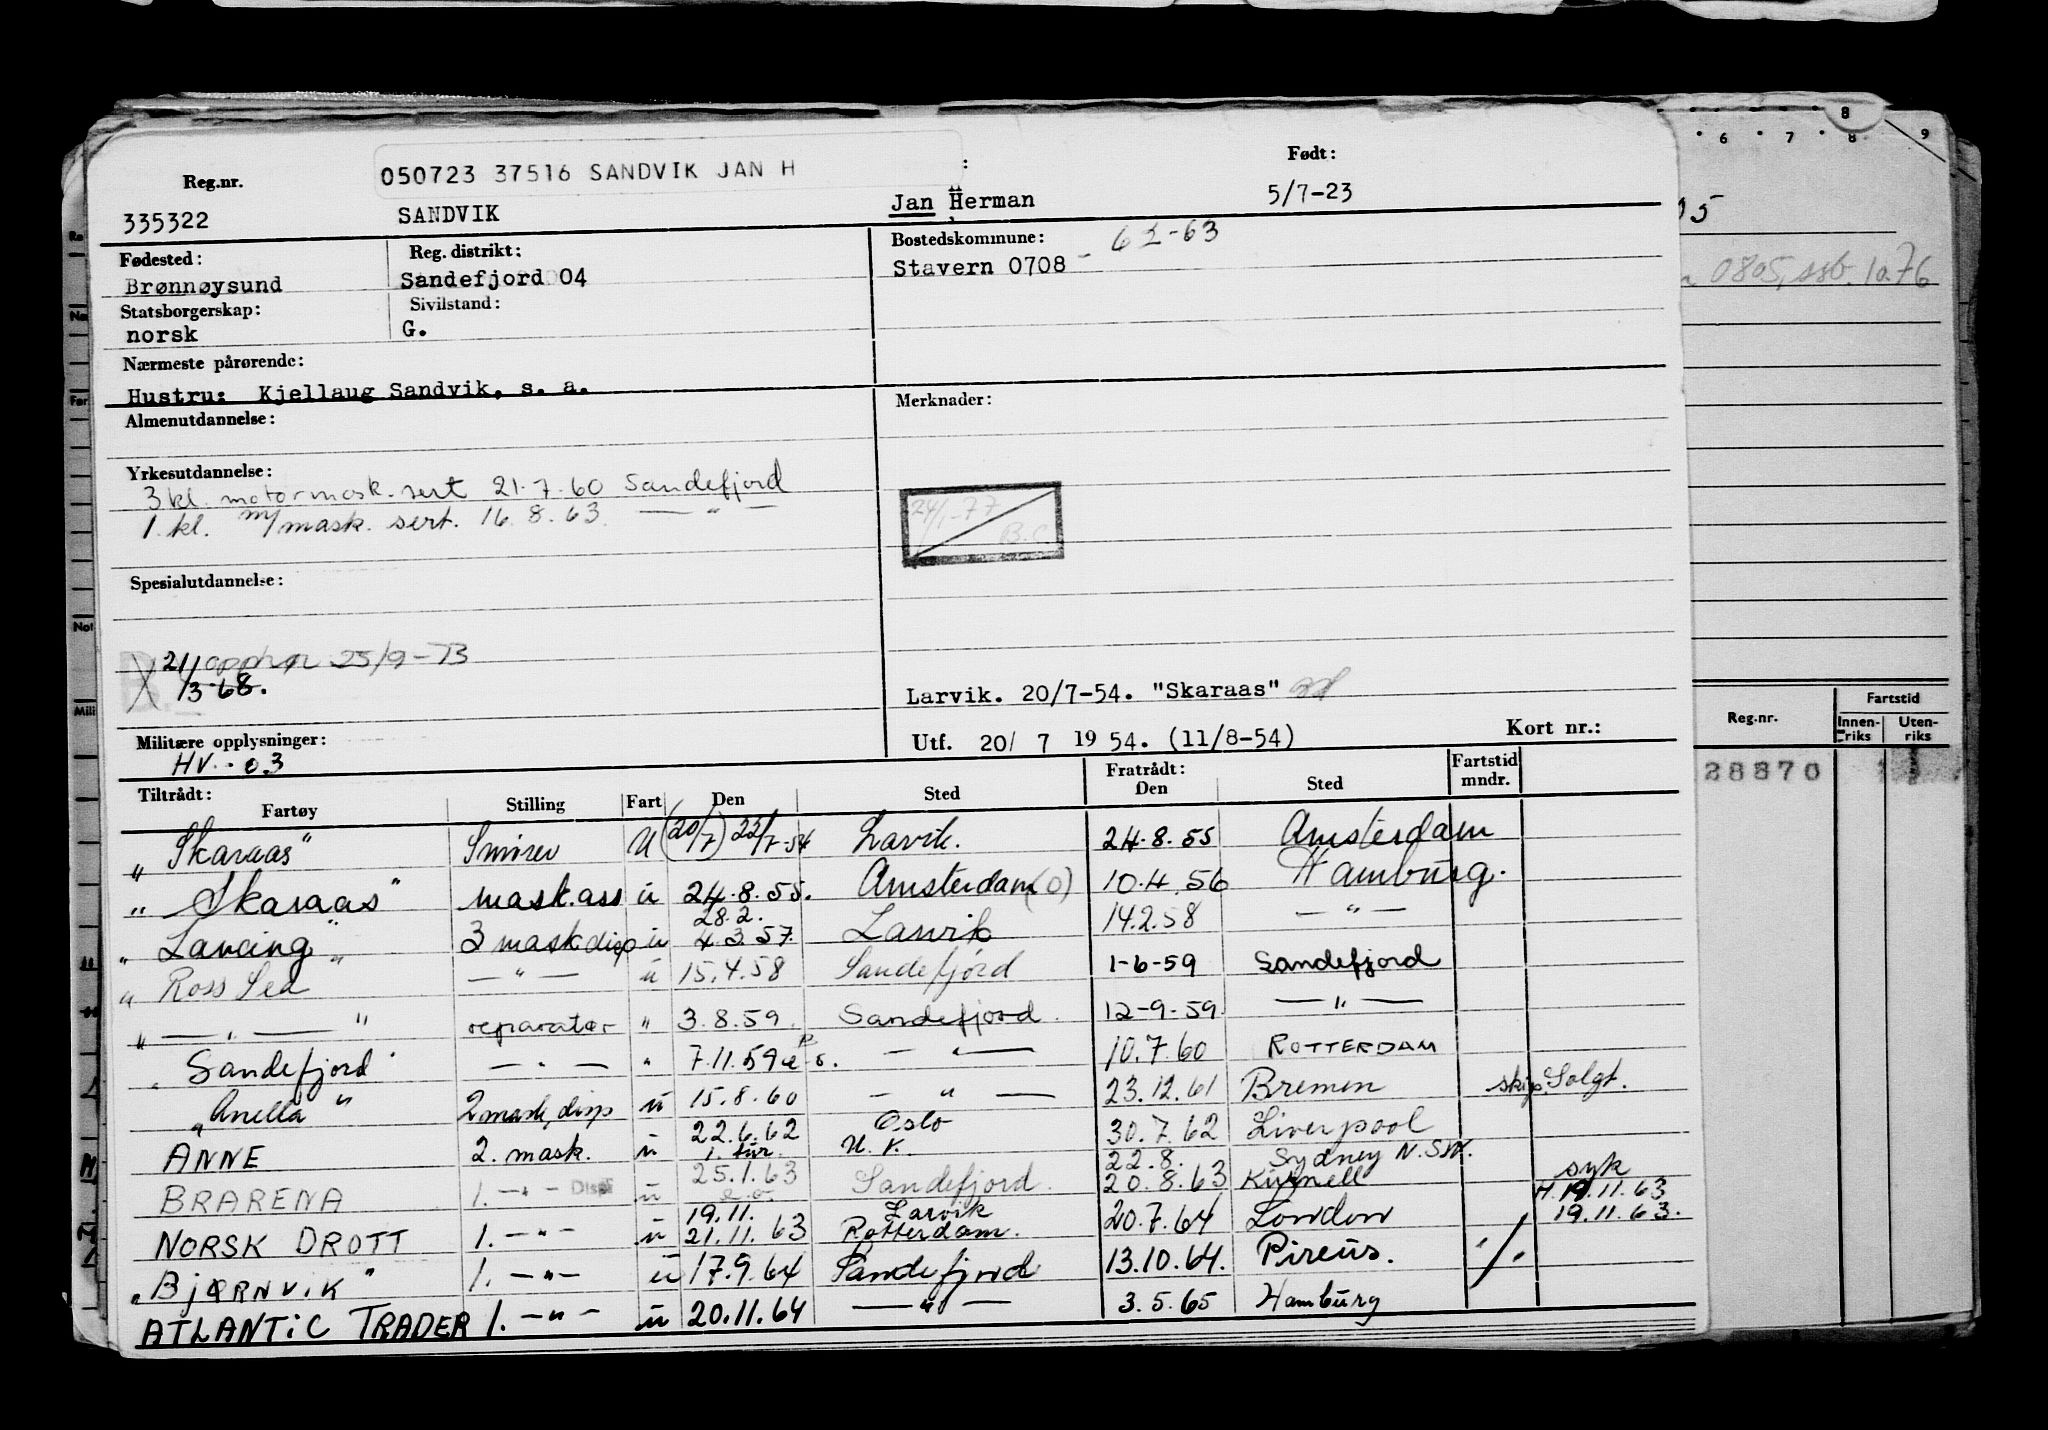 050723 37516 SANDVIK JAN H
Reg.nr. Født:
335322 SANDVIK Jan Herman 5/7-23
Fødested: Reg. distrikt: Bostedskommune: 62-63
Brønnøysund Sandefjord 04 Stavern 0708
Statsborgerskap: Sivilstand:
norsk G.
Nærmeste pårørende:
Hustru: Kjellaug Sandvik, s. a.
Almenutdannelse: Merknader:
Yrkesutdannelse:
3 kl. motormask. sert 21.7.60 Sandefjord
1. kl. m/mask. sert. 16.8.63. — " —
24/1-77
B.C
Spesialutdannelse:
21/3-68. opphør 25/9-73
Larvik. 20/7-54. "Skaraas"
Militære opplysninger: Utf. 20/ 7 19 54. (11/8-54) Kort nr.:
HV. - 03
Tiltrådt: Fratrådt: Fartstid
Fartøy Stilling Fart Den Sted Den Sted mndr.
"Skaraas" Smører U (20/7) 22/7-54 Larvik. 24.8.55 Amsterdam
"Skaraas" mask.ass u 24.8.55. Amsterdam (0) 10.4.56 Hamburg.
"Lancing" 3 mask disp u 28.2. 4.3.57. Larvik 14.2.58 — " —
"Ross Sea" — " — u 15.4.58 Sandefjord 1-6-59 Sandefjord
" — " — " reparatør " 3.8.59. Sandefjord. 12-9-59. — " —
"Sandefjord" — " — " 7.11.59 — " — 10.7.60 ROTTERDAM
"Anella" 2 mask, disp u 15.8.60 — " — 23.12.61 Bremen skip Solgt.
ANNE 2. mask. u 22.6.62 1. tur. Oslo U.K. 30.7.62 Liverpool
BRARENA 1. — " — Disp u 25.1.63 Sandefjord. 22.8. 20.8.63 Sydney N.SW. Kurnell syk H. 19.11.63
NORSK DROTT 1. — " — u 19.11. 21.11.63 Larvik Rotterdam. 20.7.64 London 19.11.63.
"BJØRNVIK" 1. — " — u 17.9.64 Sandefjord 13.10.64. Pireus.
ATLANTIC TRADER 1. — " — u 20.11.64 — " — 3.5.65 Hamburg
8
6 7 8 9
05
0805, ssb. 10.76
Reg.nr. Fartstid
Innenriks Utenriks
28870